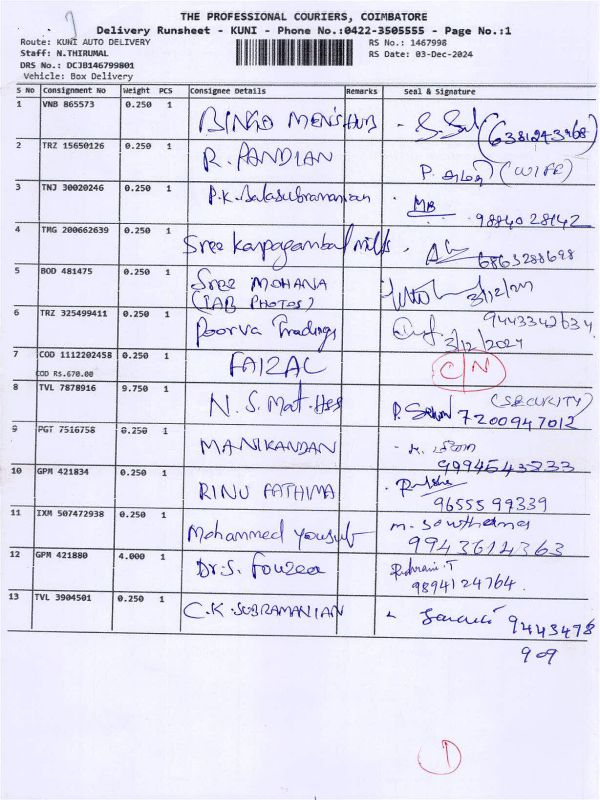 THE PROFESSIONAL COURIERS, COIMBATORE
Delivery Runsheet - KUNI - Phone No.:0422-3505555 - Page No.:1
Route: KUNI AUTO DELIVERY RS No.: 1467998
Staff: N.THIRUMAL RS Date: 03-Dec-2024
DRS No.: DCJB146799801
Vehicle: Box Delivery
S No Consignment No Weight PCS Consignee Details Remarks Seal & Signature
1 VNB 865573 0.250 1 BINGO MEN'S HUB 6381243968
2 TRZ 15650126 0.250 1 R. PANDIAN (WIFE)
3 TNJ 30020246 0.250 1 P.K. Balasubramanian 9884028142
4 TMG 200662639 0.250 1 Sree Karpagambal mills 6863288698
5 BOD 481475 0.250 1 Sree MOHANA
(JAB PHOTOS)
6 TRZ 325499411 0.250 1 Poorva Tradings 9443342634
3/12/2024
7 COD 1112202458 0.250 1 FAIZAL C/N
COD Rs.670.00
8 TVL 7878916 9.750 1 N.S. Mat. Hss (SECURITY)
7200947012
9 PGT 7516758 0.250 1 MANIKANDAN
9994543233
10 GPM 421834 0.250 1 RINU FATHIMA
9655599339
11 IXM 507472938 0.250 1 Mohammed yousuf
9943614363
12 GPM 421880 4.000 1 Dr.S. Fouzea Rudhrani.T
9894124764
13 TVL 3904501 0.250 1 C.K.SUBRAMANIAN 9443478
909
1